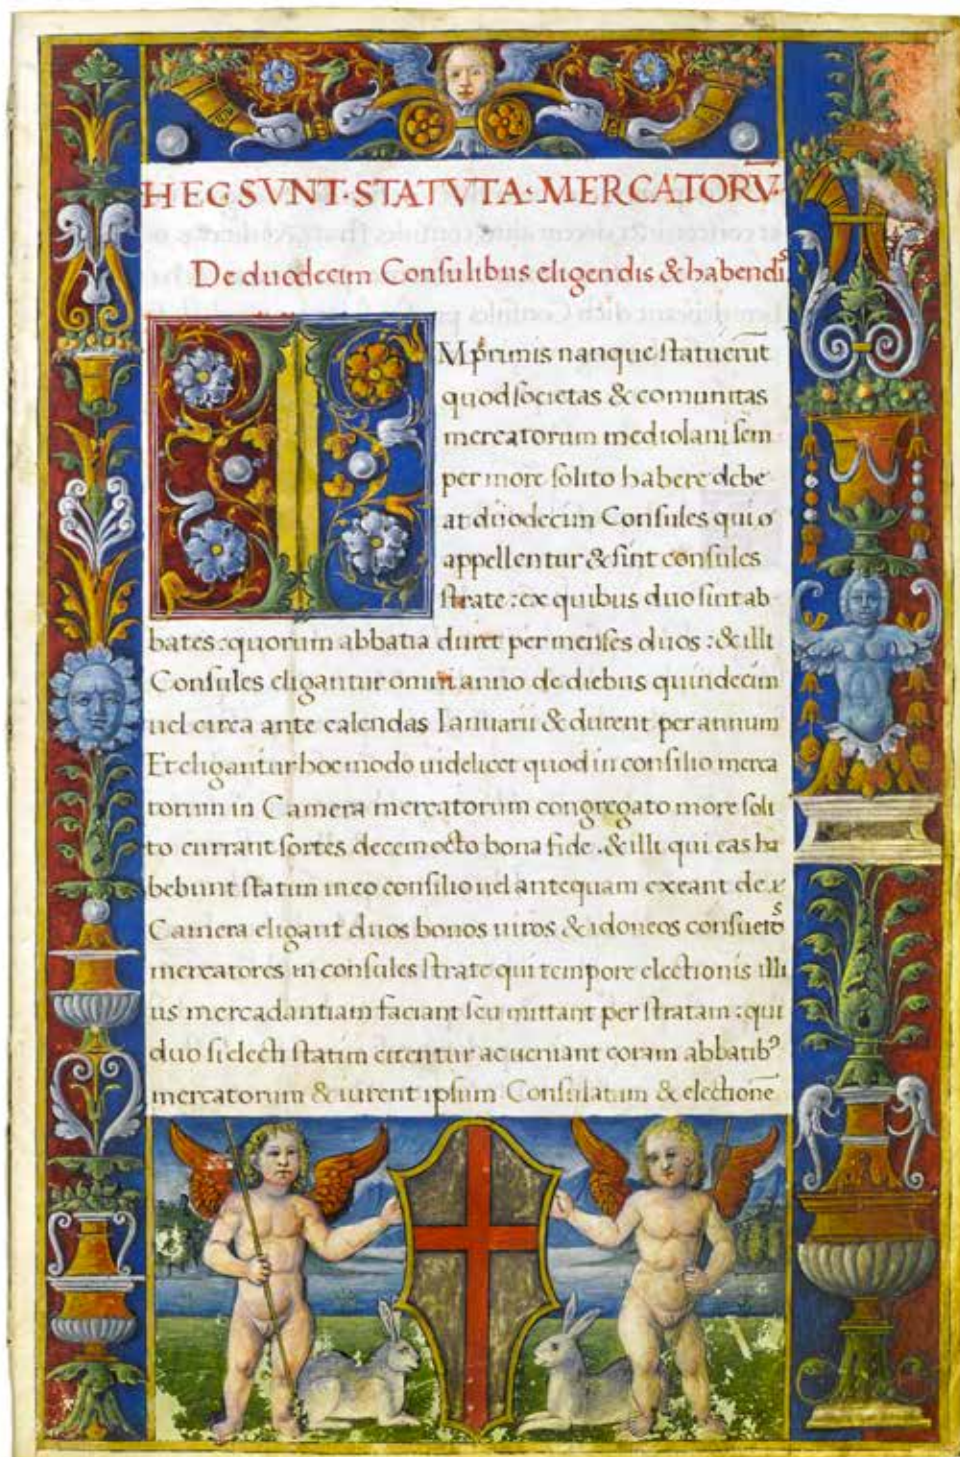 HEC SVNT·STATVTA·MERCATORV̅
De duodecim Consulibus eligendis & habendis
IMprimis nanque statuerūt
quod societas & comunitas
mercatorum mediolani sem
per more solito habere debe
at duodecim Consules qui
appellentur & sint consules
strate: ex quibus duo sint ab
bates: quorum abbatia duret per menses duos: & illi
Consules eligantur omni anno de diebus quindecim
uel circa ante calendas Ianuarii & durent per annum
Et eligantur hoc modo uidelicet quod in consilio merca
torum in Camera mercatorum congregato more soli
to currant sortes decemocto bona fide. & illi qui eas ha
bebunt statim in eo consilio uel antequam exeant de
Camera eligant duos bonos uiros & idoneos consuetos
mercatores in consules strate qui tempore electionis illi
us mercadantiam faciant seu mittant per stratam: qui
duo si electi statim citentur ac ueniant coram abbatibꝰ
mercatorum & iurent ipsum Consulatum & electionē